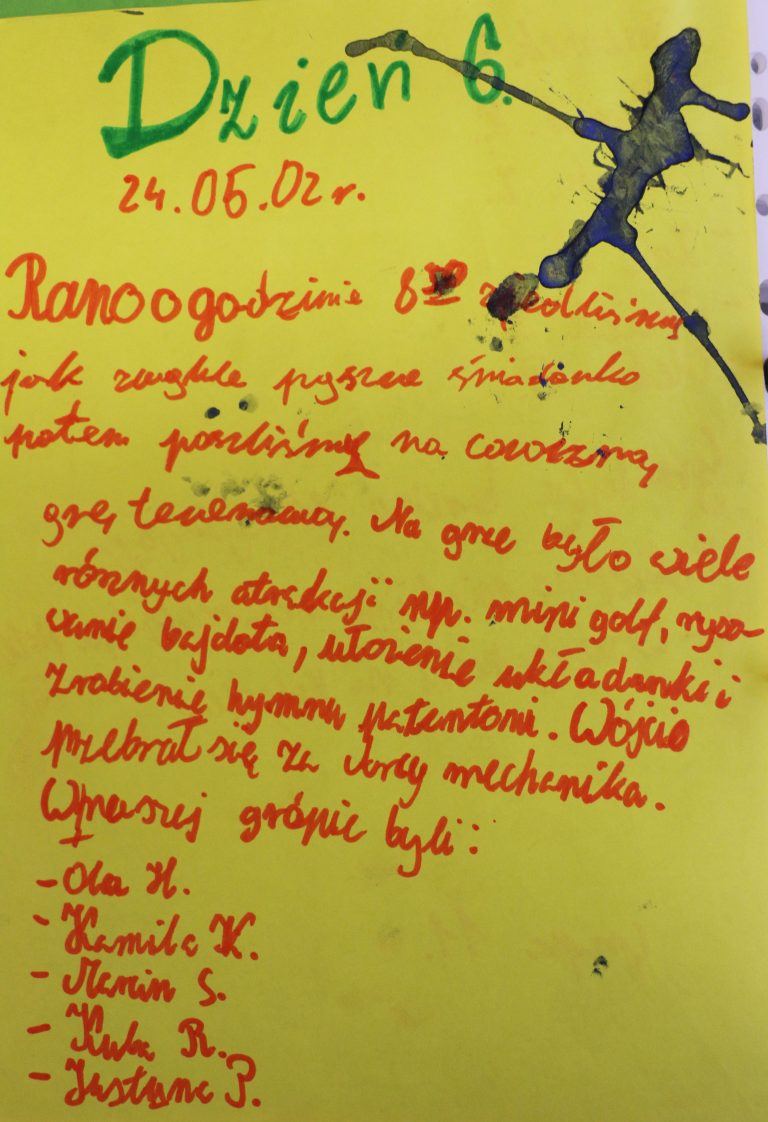 Dzień 6.
24.05.02r.
Rano o godzinie 8³⁰ zjedliśmy
jak zwykle pyszne śniadanko
potem poszliśmy na coroczną
grę terenową. Na grze było wiele
różnych atrakcji np. mini golf, ryso-
wanie bajdoła, ułożenie układanki i
zrobienie hymnu patentoni. Wójcio
przebrał się za dorcy mechanika.
W naszej grópie byli:
- Ola H.
- Kamila K.
- Marcin S.
- Kuba R.
- Justyna P.